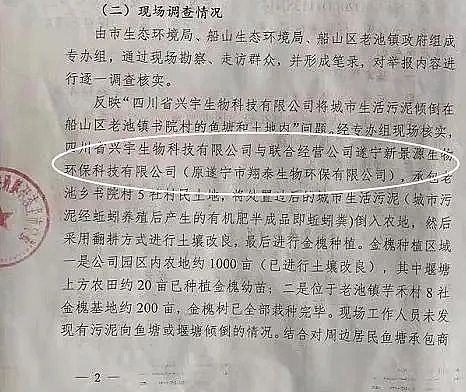 （二）现场调查情况
由市生态环境局、船山生态环境局、船山区老池镇政府组成
专办组，通过现场勘察、走访群众，并形成笔录，对举报内容进
行逐一调查核实。
反映“四川省兴宇生物科技有限公司将城市生活污泥倾倒在
船山区老池镇书院村的鱼塘和土地内”问题。经专办组现场核实，
四川省兴宇生物科技有限公司与联合经营公司遂宁新景源生物
环保科技有限公司（原遂宁市翔泰生物环保有限公司），承包老
池乡书院村5社村民土地，将处置过后的城市生活污泥（城市污
泥经蚯蚓养殖后产生的有机肥半成品即蚯蚓粪)倒入农地，然后
采用翻耕方式进行土壤改良，最后进行金槐种植。金槐种植区域
一是公司园区内农地约1000亩（已进行土壤改良），其中堰塘
上方农田约20亩已种植金槐幼苗；二是位于老池镇芋禾村8社
金槐基地约200亩，金槐树已全部栽种完毕。现场工作人员未发
现有污泥向鱼塘或堰塘倾倒的情况。结合对周边居民鱼塘承包商
— 2 —